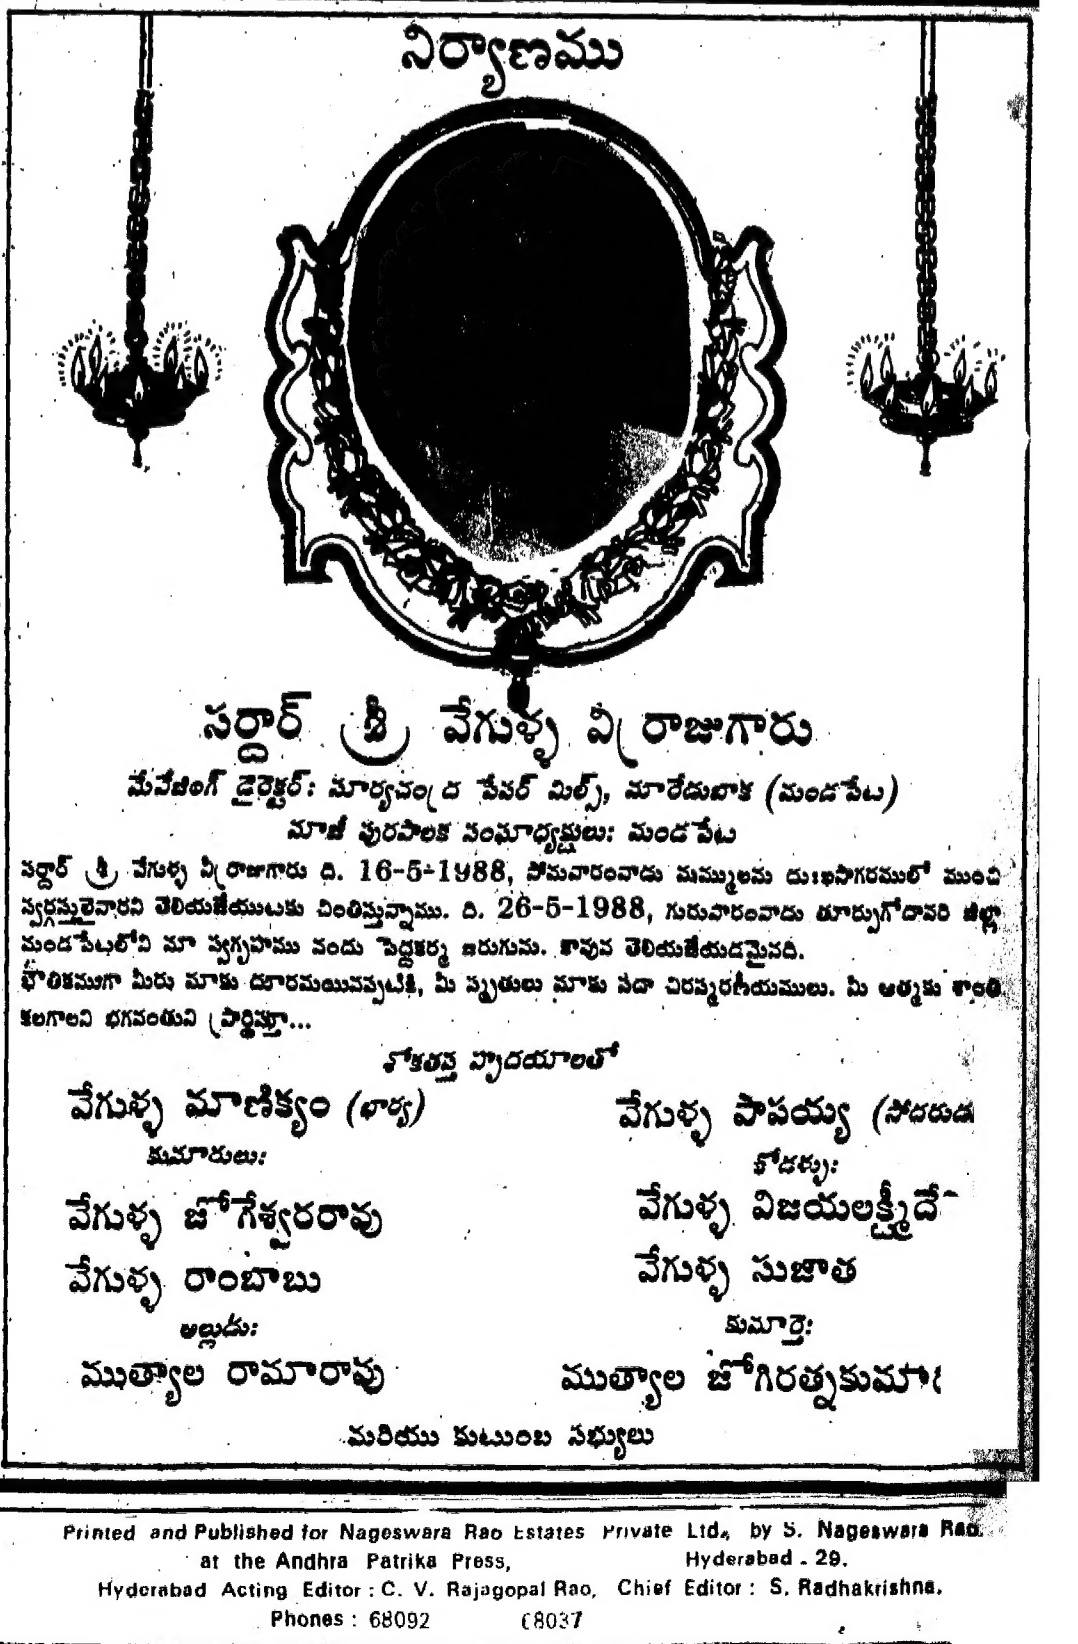 నిర్యాణము
సర్దార్ శ్రీ వేగుళ్ళ వీర్రాజుగారు
మేనేజింగ్ డైరెక్టర్: సూర్యచంద్ర పేపర్ మిల్స్, మారేడుబాక (మండపేట)
మాజీ పురపాలక సంఘాధ్యక్షులు: మండపేట
సర్దార్ శ్రీ వేగుళ్ళ వీర్రాజుగారు ది. 16-5-1988, సోమవారంనాడు మమ్ములను దుఃఖసాగరములో ముంచి
స్వర్గస్తులైనారని తెలియజేయుటకు చింతిస్తున్నాము. ది. 26-5-1988, గురువారంనాడు తూర్పుగోదావరి జిల్లా
మండపేటలోని మా స్వగృహము నందు పెద్దకర్మ జరుగును. కావున తెలియజేయడమైనది.
భౌతికముగా మీరు మాకు దూరమయినప్పటికి, మీ స్మృతులు మాకు సదా చిరస్మరణీయములు. మీ ఆత్మకు శాంతి
కలగాలని భగవంతుని ప్రార్థిస్తూ...
శోకతప్త హృదయాలతో
వేగుళ్ళ మాణిక్యం (భార్య) వేగుళ్ళ పాపయ్య (సోదరుడు
కుమారులు: కోడళ్ళు:
వేగుళ్ళ జోగేశ్వరరావు వేగుళ్ళ విజయలక్ష్మీదే
వేగుళ్ళ రాంబాబు వేగుళ్ళ సుజాత
అల్లుడు: కుమార్తె:
ముత్యాల రామారావు ముత్యాల జోగిరత్నకుమా
మరియు కుటుంబ సభ్యులు
Printed and Published for Nageswara Rao Estates Private Ltd., by S. Nageswara Rao.
at the Andhra Patrika Press, Hyderabad - 29.
Hyderabad Acting Editor : C. V. Rajagopal Rao, Chief Editor : S. Radhakrishna.
Phones : 68092 68037